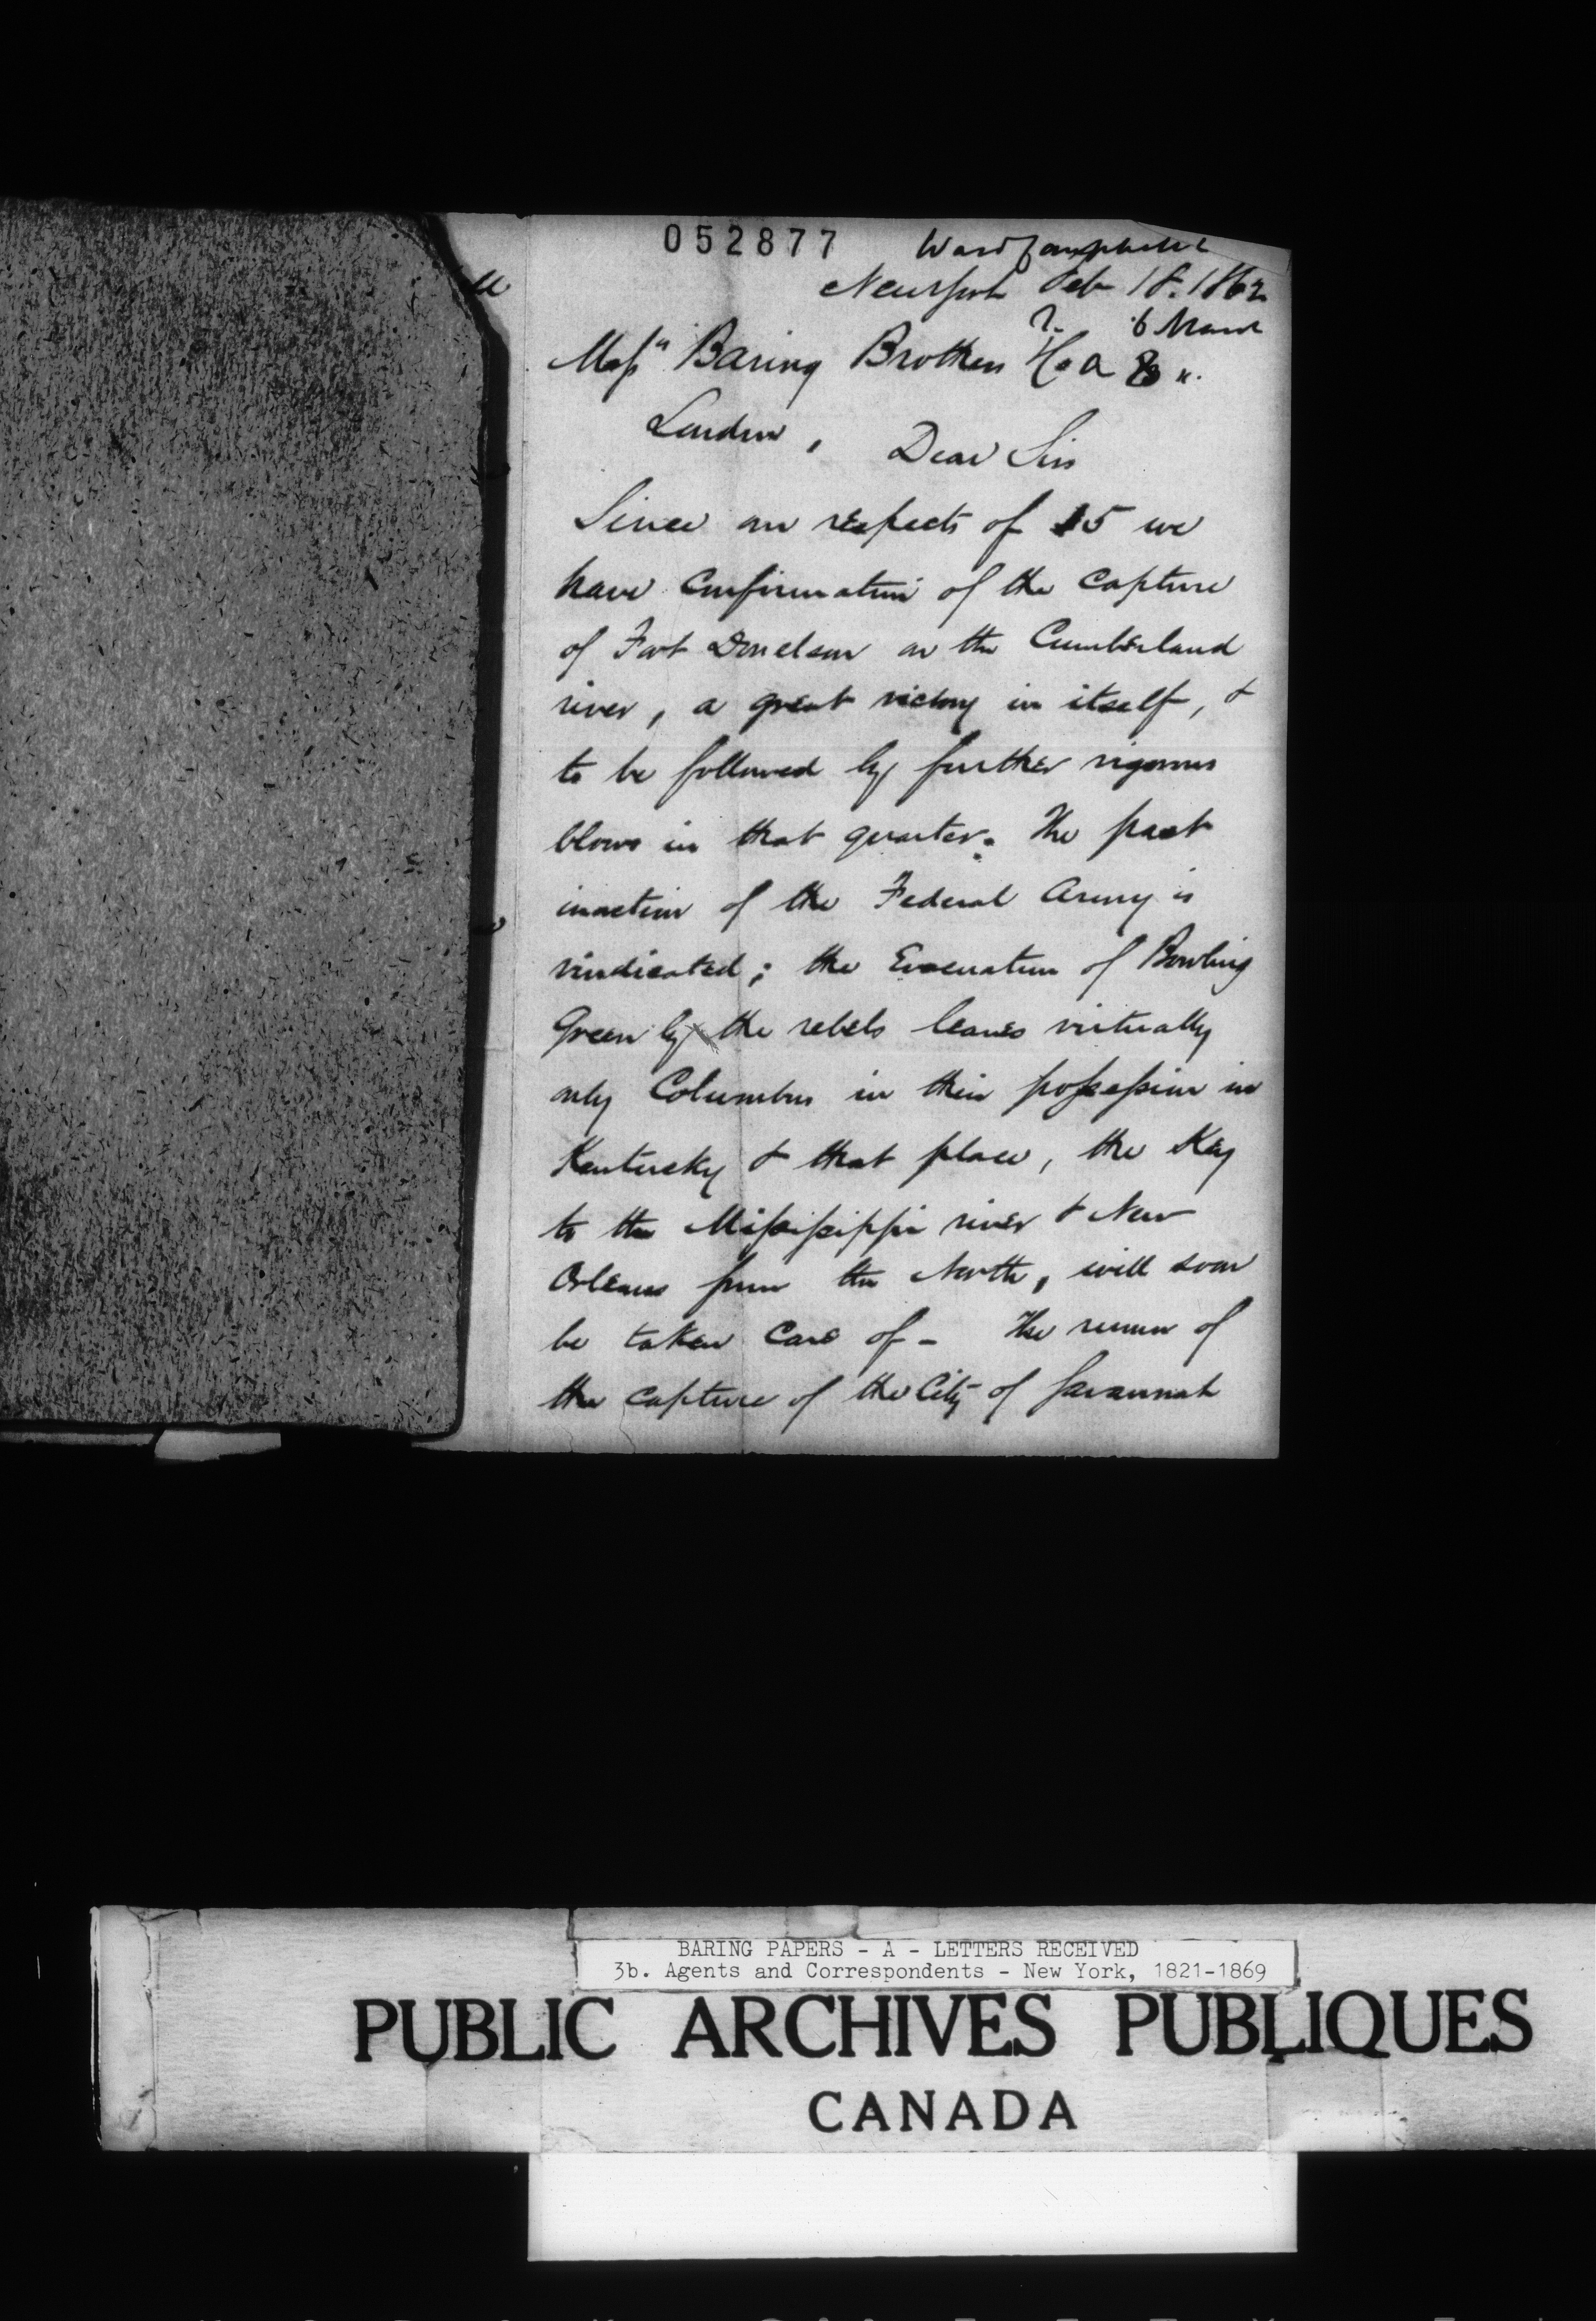 052877
Ward Campbell
New York Feb 18. 1862
6 March
Messrs Baring Brothers & Co
London, Dear Sirs
Since our respects of 15 we
have confirmation of the capture
of Fort Donelson on the Cumberland
river, a great victory in itself, &
to be followed by further vigorous
blows in that quarter. The past
inaction of the Federal Army is
vindicated; the Evacuation of Bowling
Green by the rebels leaves virtually
only Columbus in their possession in
Kentucky & that place, the Key
to the Mississippi river & New
Orleans from the North, will soon
be taken care of - The rumor of
the capture of the City of Savannah
BARING PAPERS - A - LETTERS RECEIVED
3b. Agents and Correspondents - New York, 1821-1869
PUBLIC ARCHIVES PUBLIQUES
CANADA